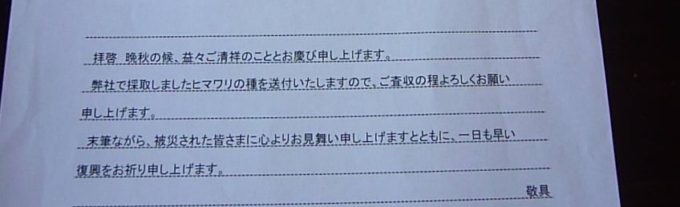 拝啓 晩秋の候、益々ご清祥のこととお慶び申し上げます。
弊社で採取しましたヒマワリの種を送付いたしますので、ご査収の程よろしくお願い
申し上げます。
末筆ながら、被災された皆さまに心よりお見舞い申し上げますとともに、一日も早い
復興をお祈り申し上げます。
敬具